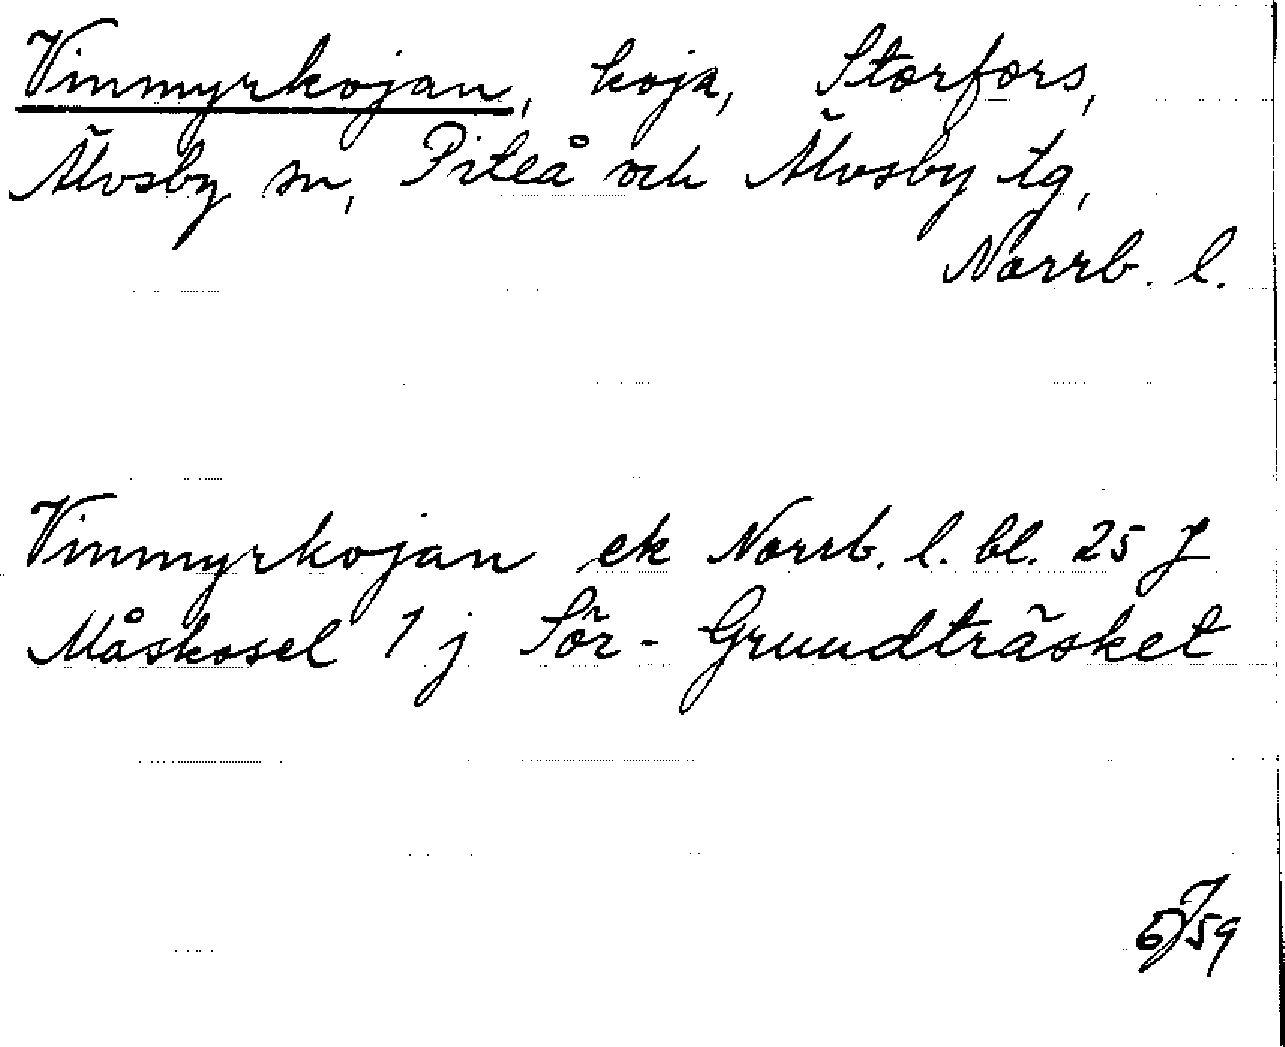 Vinmyrkojan, koja, Storfors,
Älvsby sn, Piteå och Älvsby tg,
Norrb. l.
Vinmyrkojan ek Norrb. l. bl. 25 J
Måskosel 1 j Sör-Grundträsket